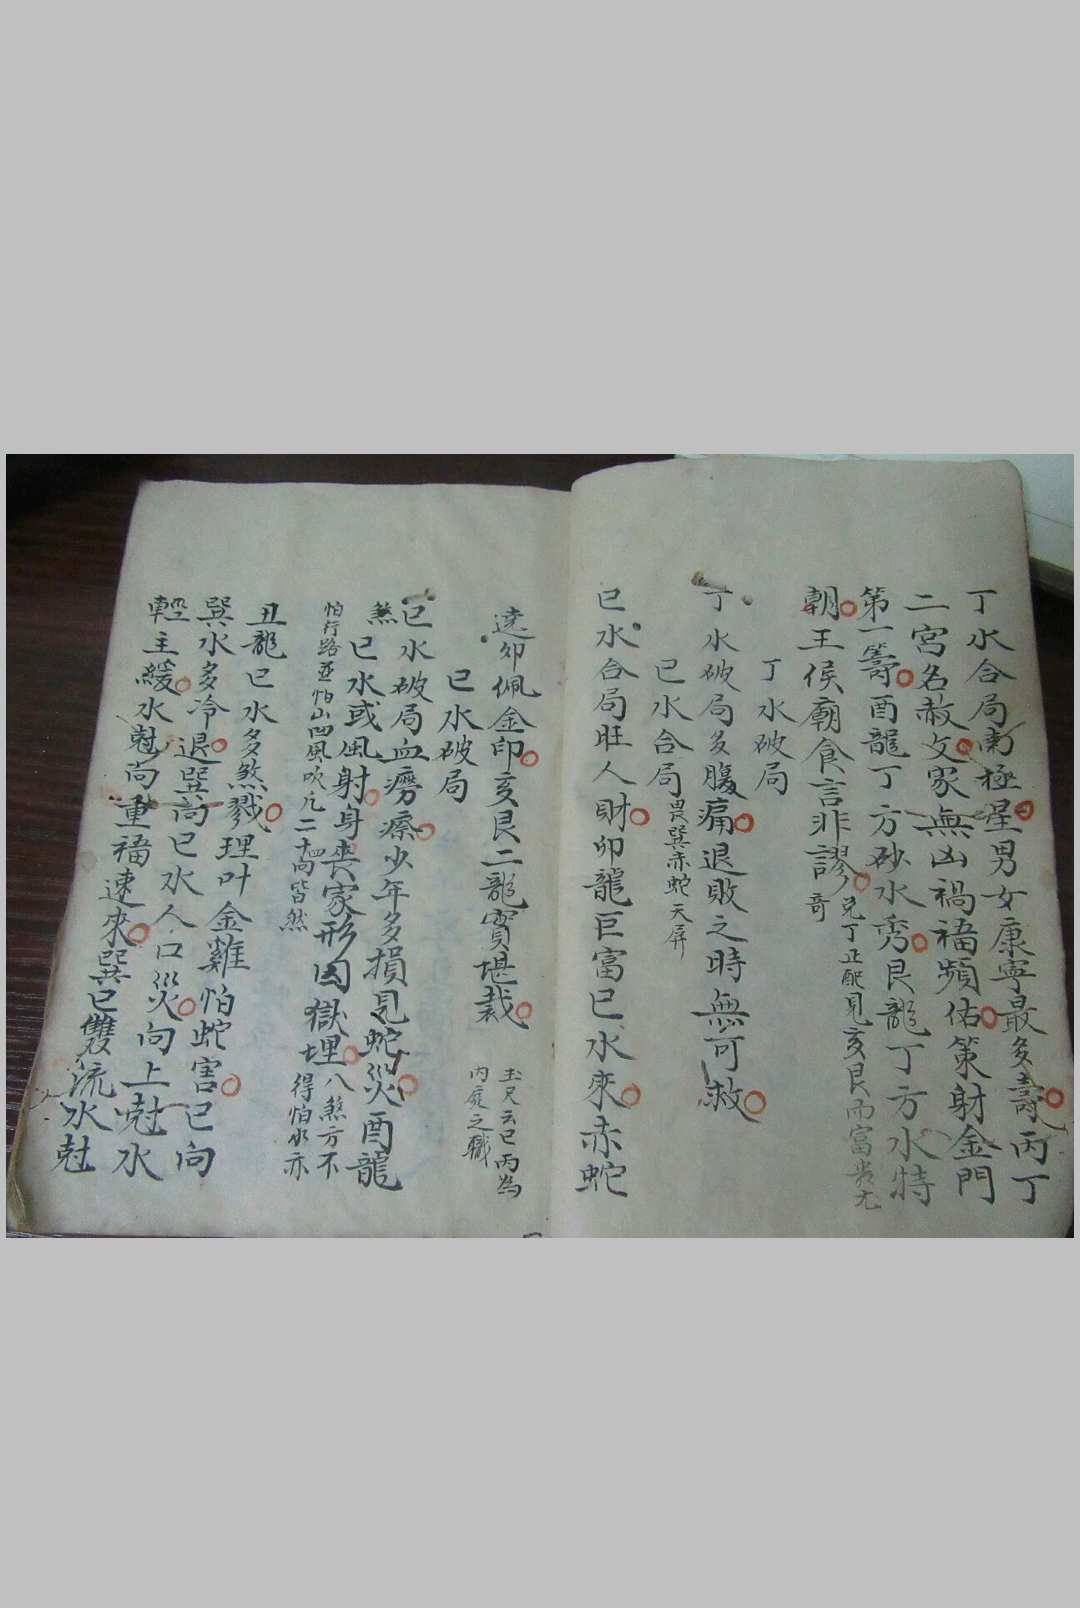 丁水合局南極星男女康寧最多壽丙丁
二宮名赦文家無凶禍福頻佑策射金門
第一籌酉龍丁方砂水秀艮龍丁方水特
朝王侯廟食言非謬兌丁正配見亥艮而富貴尤
奇
丁水破局
丁水破局多腹痛退敗之時無可救
巳水合局畏巽赤蛇天屏
巳水合局旺人財卯龍巨富巳水來赤蛇
達卯佩金印亥艮二龍寶堪裁玉尺云巳丙為
內庭之職
巳水破局
巳水破局血癆瘵少年多損見蛇災酉龍
煞巳水或風射身喪家形囚獄埋八煞方不
怕行路並怕山凹風吹凡二十四向皆然得怕水亦
丑龍巳水多煞戮理叶金雞怕蛇害巳向
巽水多冷退巽向巳水人口災向上尅水
輕主緩水尅向重福速來巽巳雙流水尅